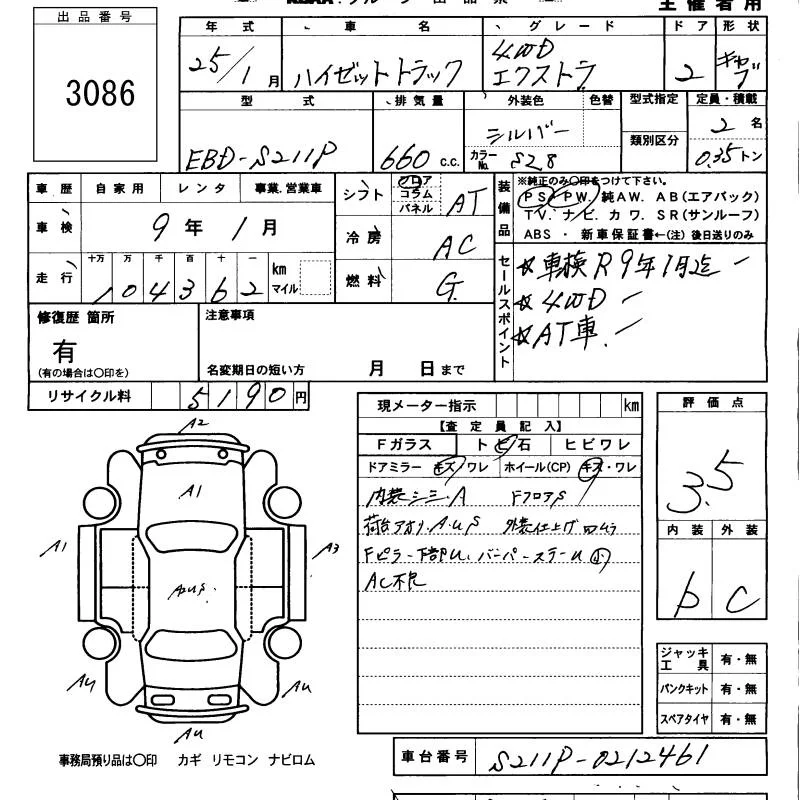 出品番号
3086
主催者用
年式 車名 グレード ドア 形状
25/1月 ハイゼットトラック 4WD エクストラ 2 キャブ
型式 排気量 外装色 色替 型式指定 定員・積載
EBD-S211P 660 c.c. シルバー 2名
カラーNo. S28 類別区分 0.35トン
車歴 自家用 レンタ 事業.営業車
車検 9年1月
走行 十万 万 千 百 十 一
104362 km マイル
シフト フロア コラム パネル AT
冷房 AC
燃料 G
装備品
※純正のみ〇印をつけて下さい。
PS・PW.純AW.AB(エアバック)
TV.ナビ.カワ.SR(サンルーフ)
ABS・新車保証書←(注)後日送りのみ
セールスポイント
☆車検R9年1月迄
☆4WD
☆AT車
修復歴 箇所 注意事項
有
(有の場合は〇印を) 名変期日の短い方 月 日まで
リサイクル料 5190円
現メーター指示 km
【査定員記入】
Fガラス トビ石 ヒビワレ
ドアミラー キズ/ワレ ホイール(CP) キズ・ワレ
内装シミ.A FフロアS
荷台アオリ.AUS 外装仕上げムラ
Fピラー下部U.バンパーステーU小
AC不良
評価点
3.5
内装 外装
D C
ジャッキ工具 有・無
パンクキット 有・無
スペアタイヤ 有・無
A2
A1
A1
A3
AUS
AU
AU
AU
事務局預り品は〇印 カギ リモコン ナビロム
車台番号 S211P-0212461